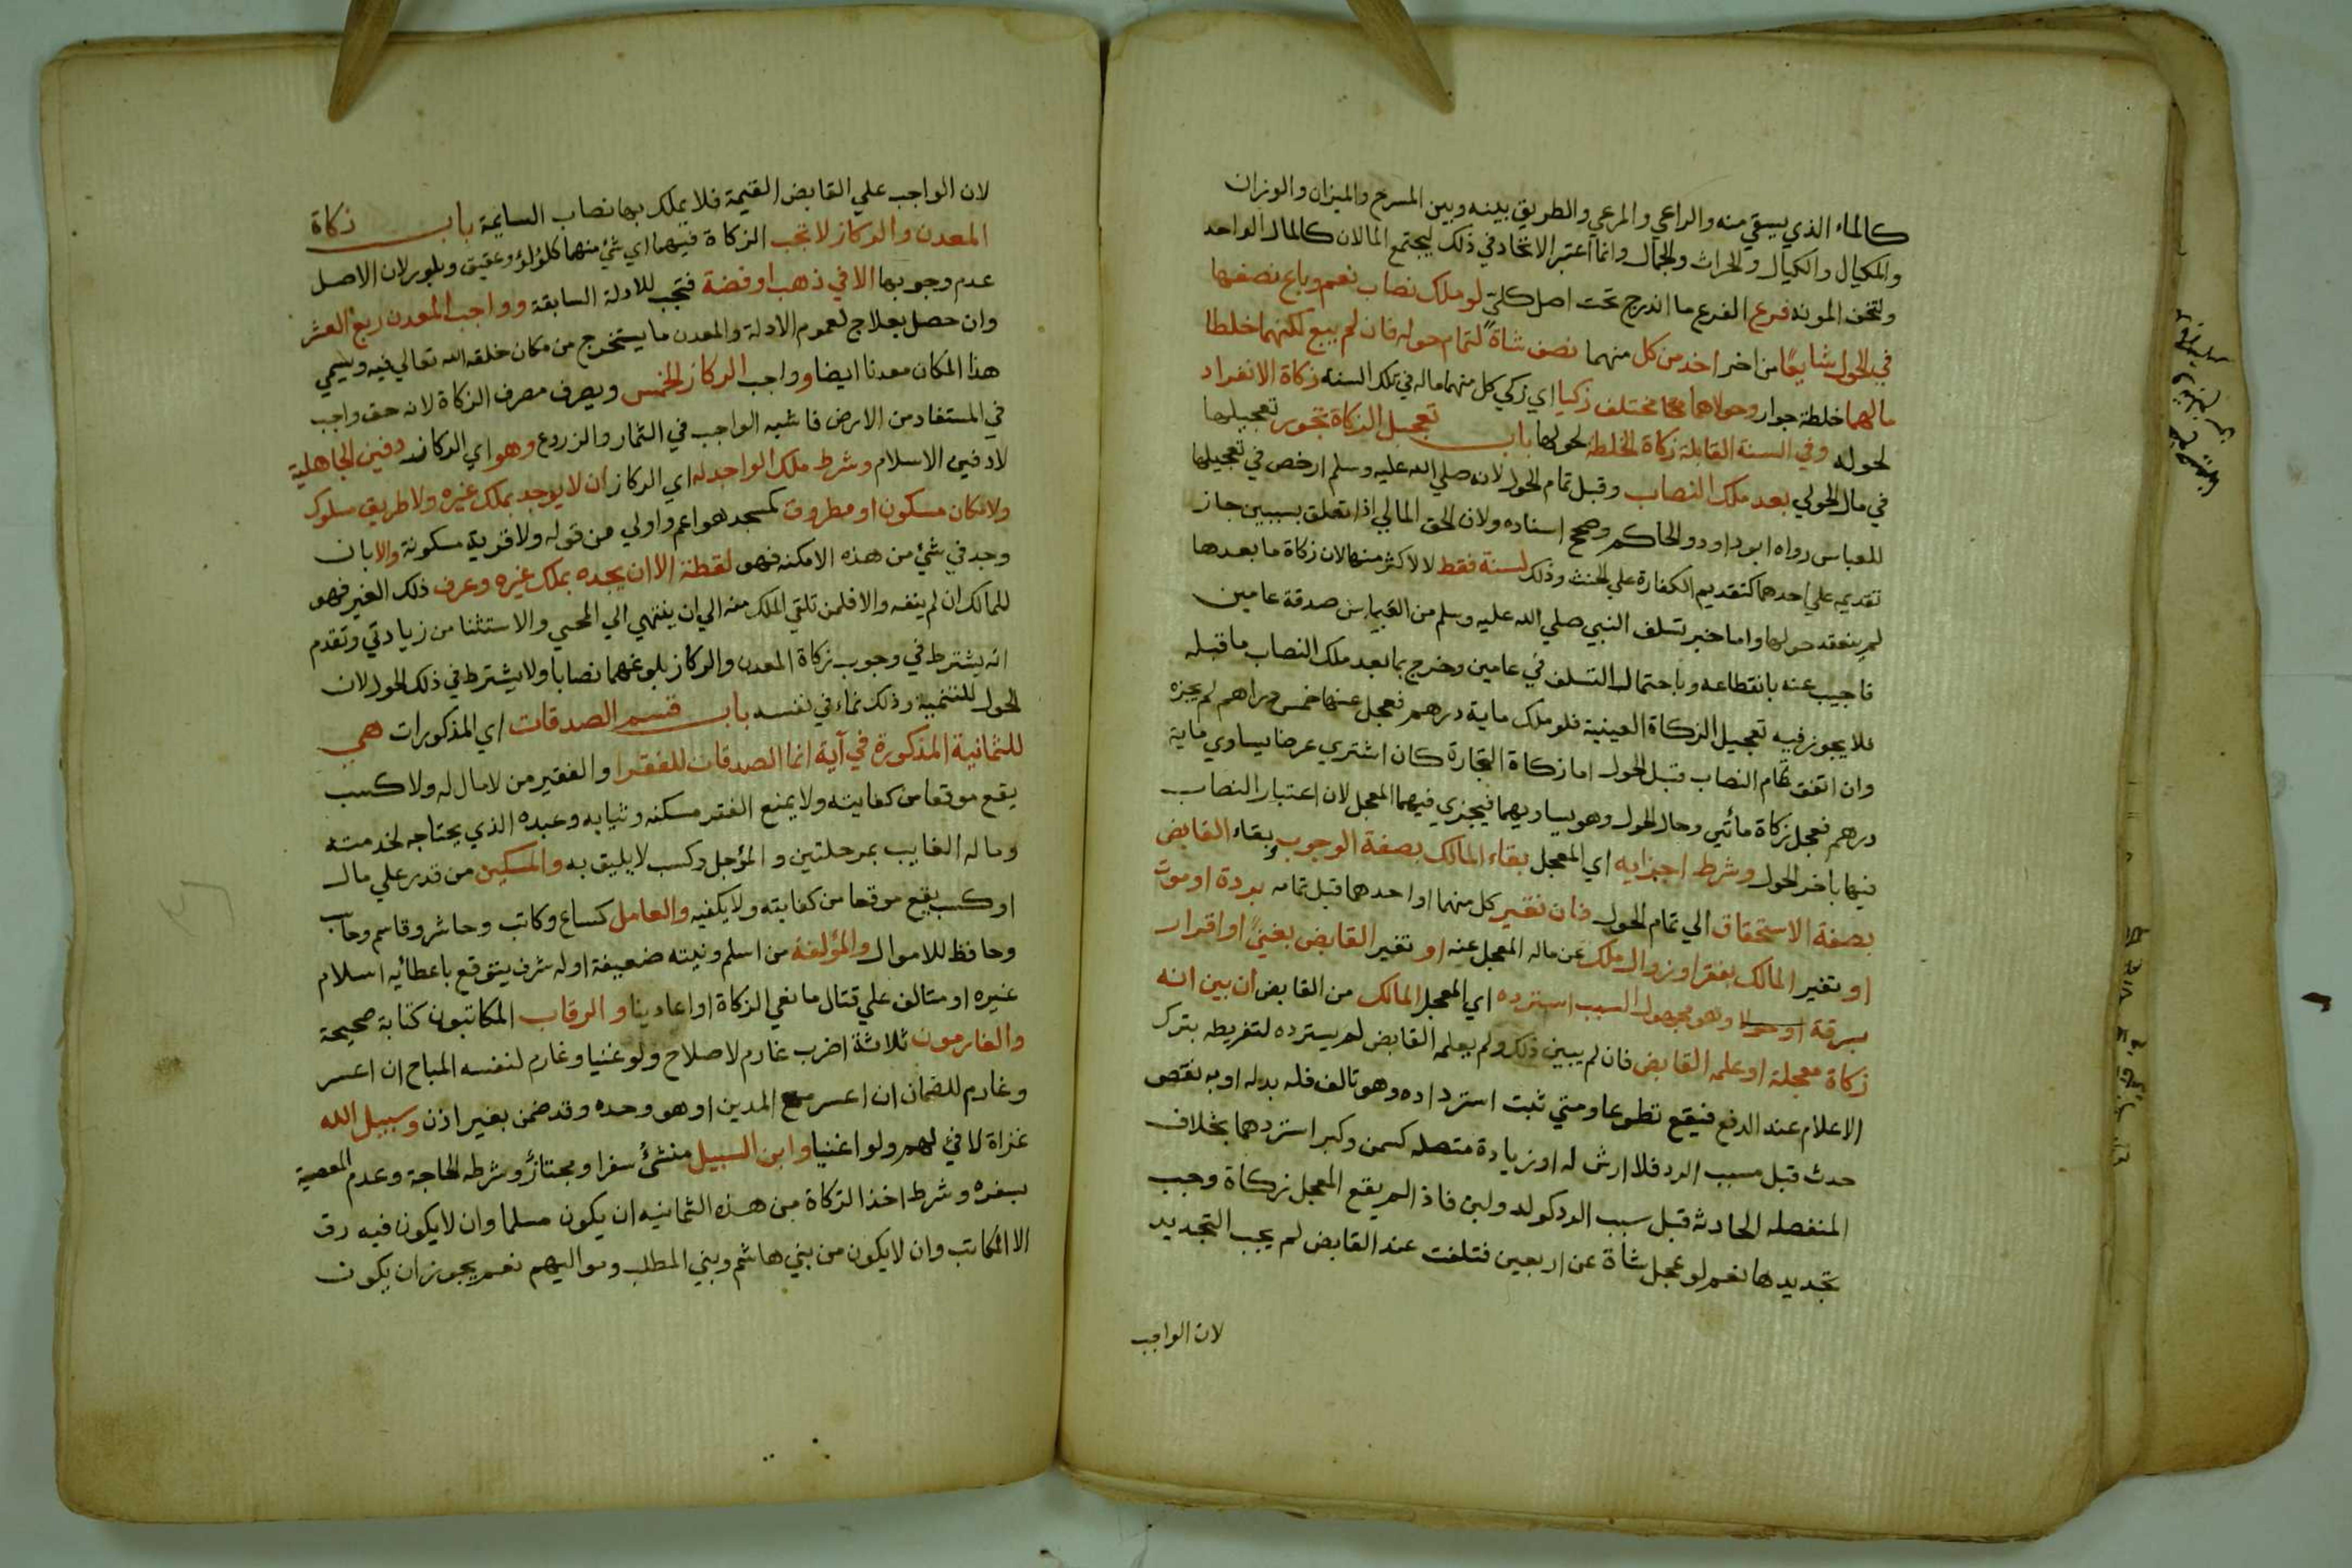 كالماء الذي يسقي منه والراعي والمرعي والطريق بينه وبين المسرح والميزان والوزان
والمكيال والكيال والحراث والجمال وانما اعتبر الاتحاد في ذلك ليجتمع المالان كالمال الواحد
ولتخف المونه فرع الفرع ما اندرج تحت اصل كلي لو ملك نصاب نعم وباع نصفها
في الحول شايعا من اخر اخد من كل منهما نصف شاة لتمام حوله فان لم يبع لكنهما خلطا
مالهما خلطة جوار وحولاهما مختلف زكيا اي زكي كل منهما ماله في تلك السنه زكاة الانفراد
لحوله وفي السنة القابلة زكاة الخلطة لحولها باب تعجيل الزكاة تجوز تعجيلها
في مال الحولي بعد ملك النصاب وقبل تمام الحول لانه صلي الله عليه وسلم ارخص في تعجيلها
للعباس رواه ابو داود والحاكم وصحح اسناده ولان الحق المالي اذا تعلق بسببين جاز
تقديمه علي احدهما كتقديم الكفارة علي الحنث وذلك لسنة فقط لا لاكثر منها لان زكاة ما بعدها
لم ينعقد حولها واما خبر تسلف النبي صلي الله عليه وسلم من العباس صدقة عامين
فاجيب عنه بانقطاعه وباحتمال التسلف في عامين وخرج بما بعد ملك النصاب ما قبله
فلا يجوز فيه تعجيل الزكاة العينية فلو ملك ماية درهم فعجل عنها خمس دراهم لم يجزه
وان اتفق تمام النصاب قبل الحول اما زكاة التجارة كان اشتري عرضا يساوي ماية
درهم فعجل زكاة مأتي وحال الحول وهو يساويهما فيجزي فيهما المعجل لان اعتبار النصاب
فيها باخر الحول وشرط اجزايه اي المعجل بقاء المالك بصفة الوجوب وبقاء القابض
بصفة الاستحقاق الي تمام الحول فان تغير كل منهما او احدهما قبل تمامه بردة او موت
او تغير المالك بفقر او زوال ملك عن ماله المعجل عنه او تغير القابض بغني او اقرار
برقة او حولا وهو مجهول السبب استرده اي المعجل المالك من القابض ان بين انه
زكاة معجلة او علمه القابض فان لم يبين ذلك ولم يعلمه القابض لم يسترده لتفريطه بترك
الاعلام عند الدفع فيقع تطوعا ومتي ثبت استرداده وهو تالف فله بدله او به نقص
حدث قبل سبب الرد فلا ارش له او زيادة متصله كسمن وكبر استردهما بخلاف
المنفصله الحادثه قبل سبب الرد كولد ولبن فاذا لم يقع المعجل زكاة وجب
تجديدها نعم لو عجل شاة عن اربعين فتلفت عند القابض لم يجب التجديد
لان الواجب
لان الواجب علي القابض القيمة فلا يملك بها نصاب السايمة باب زكاة
المعدن والركاز لا تجب الزكاة فيهما اي شئ منهما كلؤلؤ وعقيق وبلور لان الاصل
عدم وجوبها الا في ذهب او فضة فتجب للادلة السابقة وواجب المعدن ربع العشر
وان حصل بعلاج لعموم الادلة والمعدن ما يستخرج من مكان خلقه الله تعالي فيه ويسمي
هذا المكان معدنا ايضا وواجب الركاز الخمس ويصرف مصرف الزكاة لانه حق واجب
في المستفاد من الارض فاشبه الواجب في الثمار والزروع وهو اي الركاز دفين الجاهلية
لا دفين الاسلام وشرط ملك الواجد له اي الركاز ان لا يوجد بملك غيره ولا طريق سلوك
ولا مكان مسكون او مطروق كمسجد هو اعم واولي من قوله ولا قرية مسكونة والا بان
وجد في شئ من هذه الامكنه فهو لقطة الا ان يجده بملك غيره وعرف ذلك الغير فهو
للمالك ان لم ينفه والا فلمن تلقي الملك منه الي ان ينتهي الي المحيي والاستثنا من زيادتي وتقدم
انه يشترط في وجوب زكاة المعدن والركاز بلوغهما نصابا ولا يشترط في ذلك الحول لان
الحول للتنمية وذلك نماء في نفسه باب قسم الصدقات اي المذكورات هي
للثمانية المذكورة في آية انما الصدقات للفقرا والفقير من لا مال له ولا كسب
يقع موقعا من كفايته ولا يمنع الفقر مسكنه وثيابه وعبده الذي يحتاجه لخدمته
وماله الغايب بمرحلتين والمؤجل وكسب لا يليق به والمسكين من قدر علي مال
او كسب يقع موقعا من كفايته ولا يكفيه والعامل كساع وكاتب وحاشر وقاسم وحاسب
وحافظ للاموال والمؤلفة من اسلم ونيته ضعيفة او له شرف يتوقع باعطائه اسلام
غيره او متالف علي قتال مانعي الزكاة او اعادينا والرقاب المكاتبون كتابة صحيحة
والغارمون ثلاثة اضرب غارم لاصلاح ولو غنيا وغارم لنفسه المباح ان اعسر
وغارم للضمان ان اعسر مع المدين او هو وحده وقد ضمن بغير اذن وسبيل الله
غزاة لا فئ لهم ولو اغنيا وابن السبيل منشئ سفرا ومجتاز وشرطه الحاجة وعدم المعصية
بسفره وشرط اخذ الزكاة من هذه الثمانيه ان يكون مسلما وان لا يكون فيه رق
الا المكاتب وان لا يكون من بني هاشم وبني المطلب ومواليهم نعم يجوز ان يكون